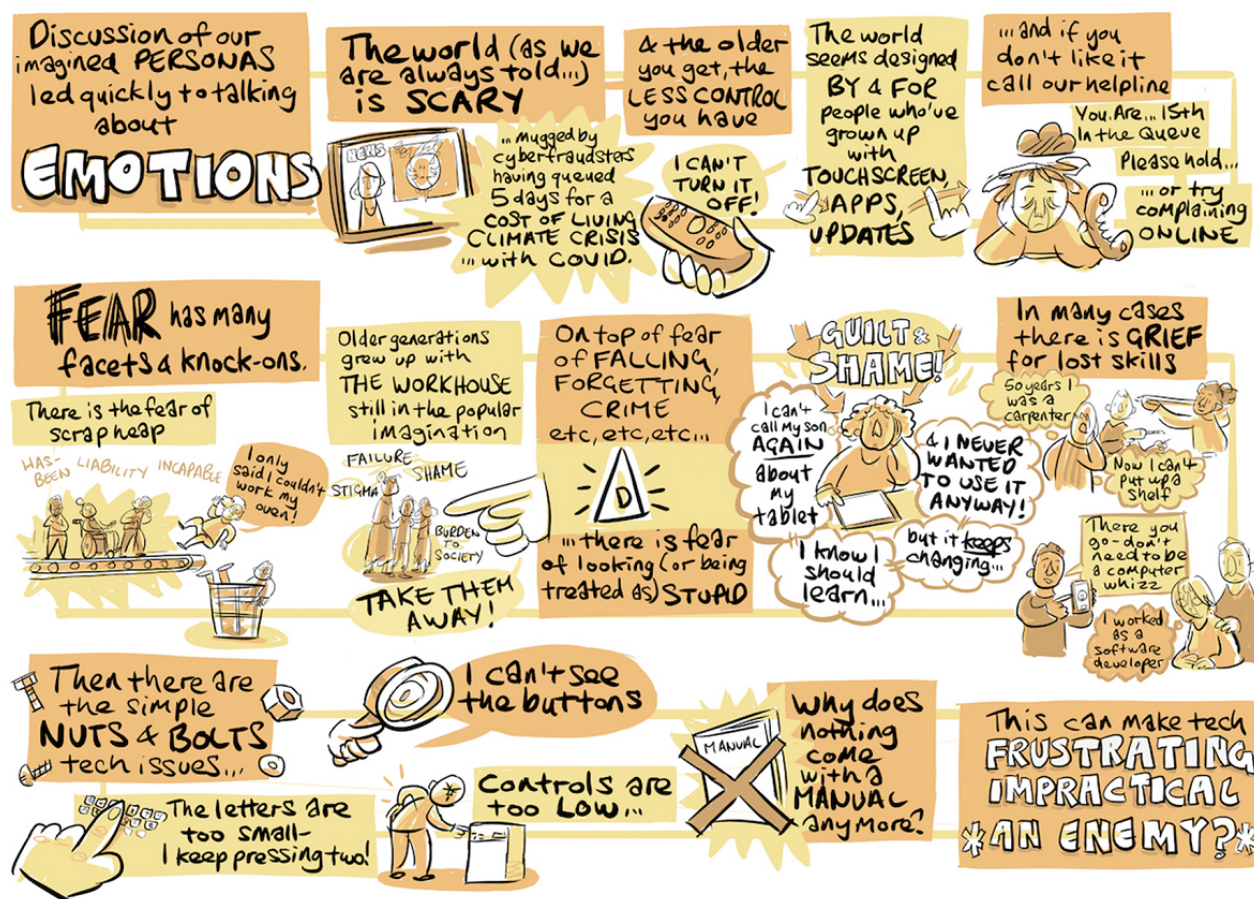 Discussion of our
imagined PERSONAS
led quickly to talking
about
EMOTIONS
The world (as we
are always told...)
is SCARY
NEWS
... mugged by
cyberfraudsters
having queued
5 days for a
COST OF LIVING
CLIMATE CRISIS
... with COVID.
& the older
you get, the
LESS CONTROL
you have
I CAN'T
TURN IT
OFF!
The world
seems designed
BY & FOR
people who've
grown up
with
TOUCHSCREEN,
APPS,
UPDATES
...and if you
don't like it
call our helpline
You Are... 15th
In the Queue
Please hold...
... or try
complaining
ONLINE
FEAR has many
facets & knock-ons.
There is the fear of
scrap heap
HAS-
BEEN
LIABILITY
INCAPABLE
I only
said I couldn't
work my
oven!
Older generations
grew up with
THE WORKHOUSE
still in the popular
imagination
FAILURE
SHAME
STIGMA
BURDEN
TO
SOCIETY
TAKE THEM
AWAY!
On top of fear
of FALLING,
FORGETTING,
CRIME
etc, etc, etc...
D
... there is fear
of looking (or being
treated as) STUPID
GUILT &
SHAME!
I can't
call my son
AGAIN
about
my
tablet
& I NEVER
WANTED
TO USE IT
ANYWAY!
I know I
should
learn...
but it keeps
changing...
In many cases
there is GRIEF
for lost skills
50 years I
was a
carpenter
Now I can't
put up a
shelf
There you
go - don't
need to be
a computer
whizz
I worked
as a
software
developer
Then there are
the simple
NUTS & BOLTS
tech issues...
I can't see
the buttons
The letters are
too small-
I keep pressing two!
Controls are
too LOW...
MANUAL
Why does
nothing
come
with a
MANUAL
anymore?
This can make tech
FRUSTRATING
IMPRACTICAL
*AN ENEMY?*